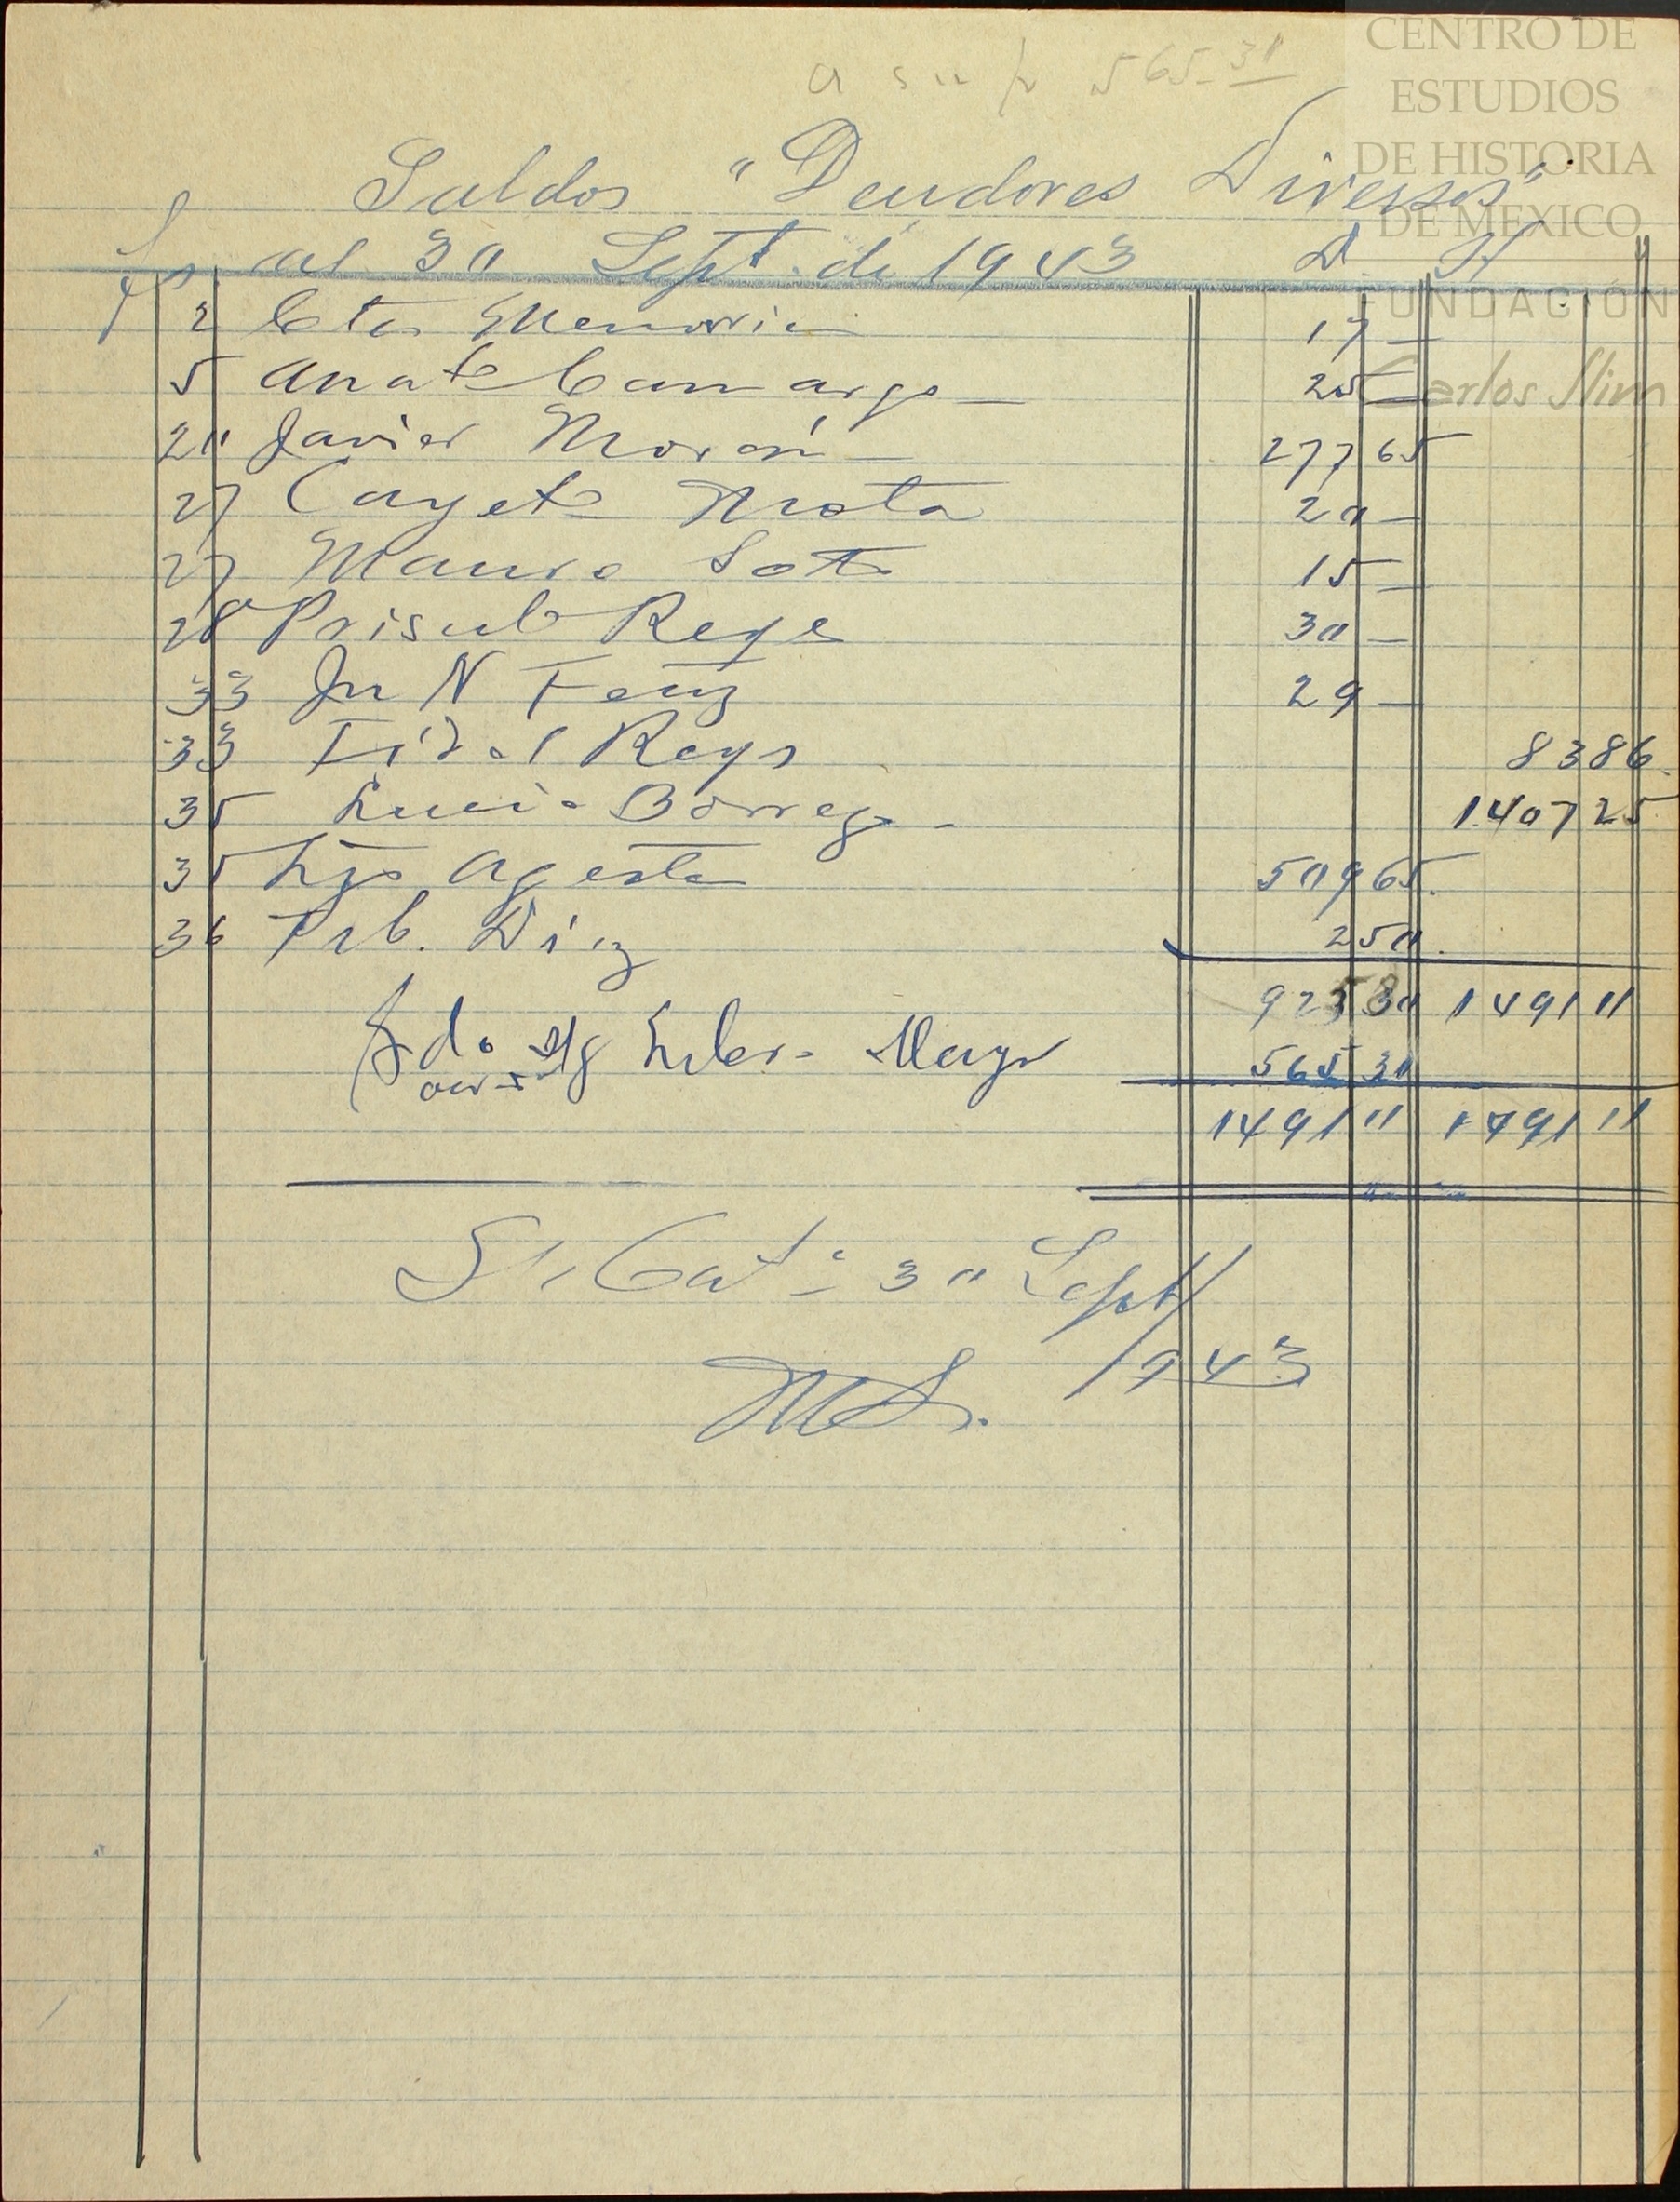 a su fv 565.31
CENTRO DE
ESTUDIOS
DE HISTORIA
DE MEXICO
FUNDACIÓN
Carlos Slim
Saldos "Deudores Diversos"
fs al 30 Sept. de 1943 D. H
2 Cta Memoria 17 —
5 Anato Camargo — 25 —
20 Javier Morán — 277 65
27 Cayeto Mota 20 —
27 Mauro Soto 15 —
28 Prisulo Reye 30 —
33 Jn N Fernz 29 —
33 Fidel Reys 83 86
35 Lucio Borrego - 1.407 25
35 Lzo Agosta 509 65.
36 Trb. Díaz 2 50.
925 80 1491 11
Sdo Mayr 565 31
1491 11 1491 11
Sept/
1943
MS.